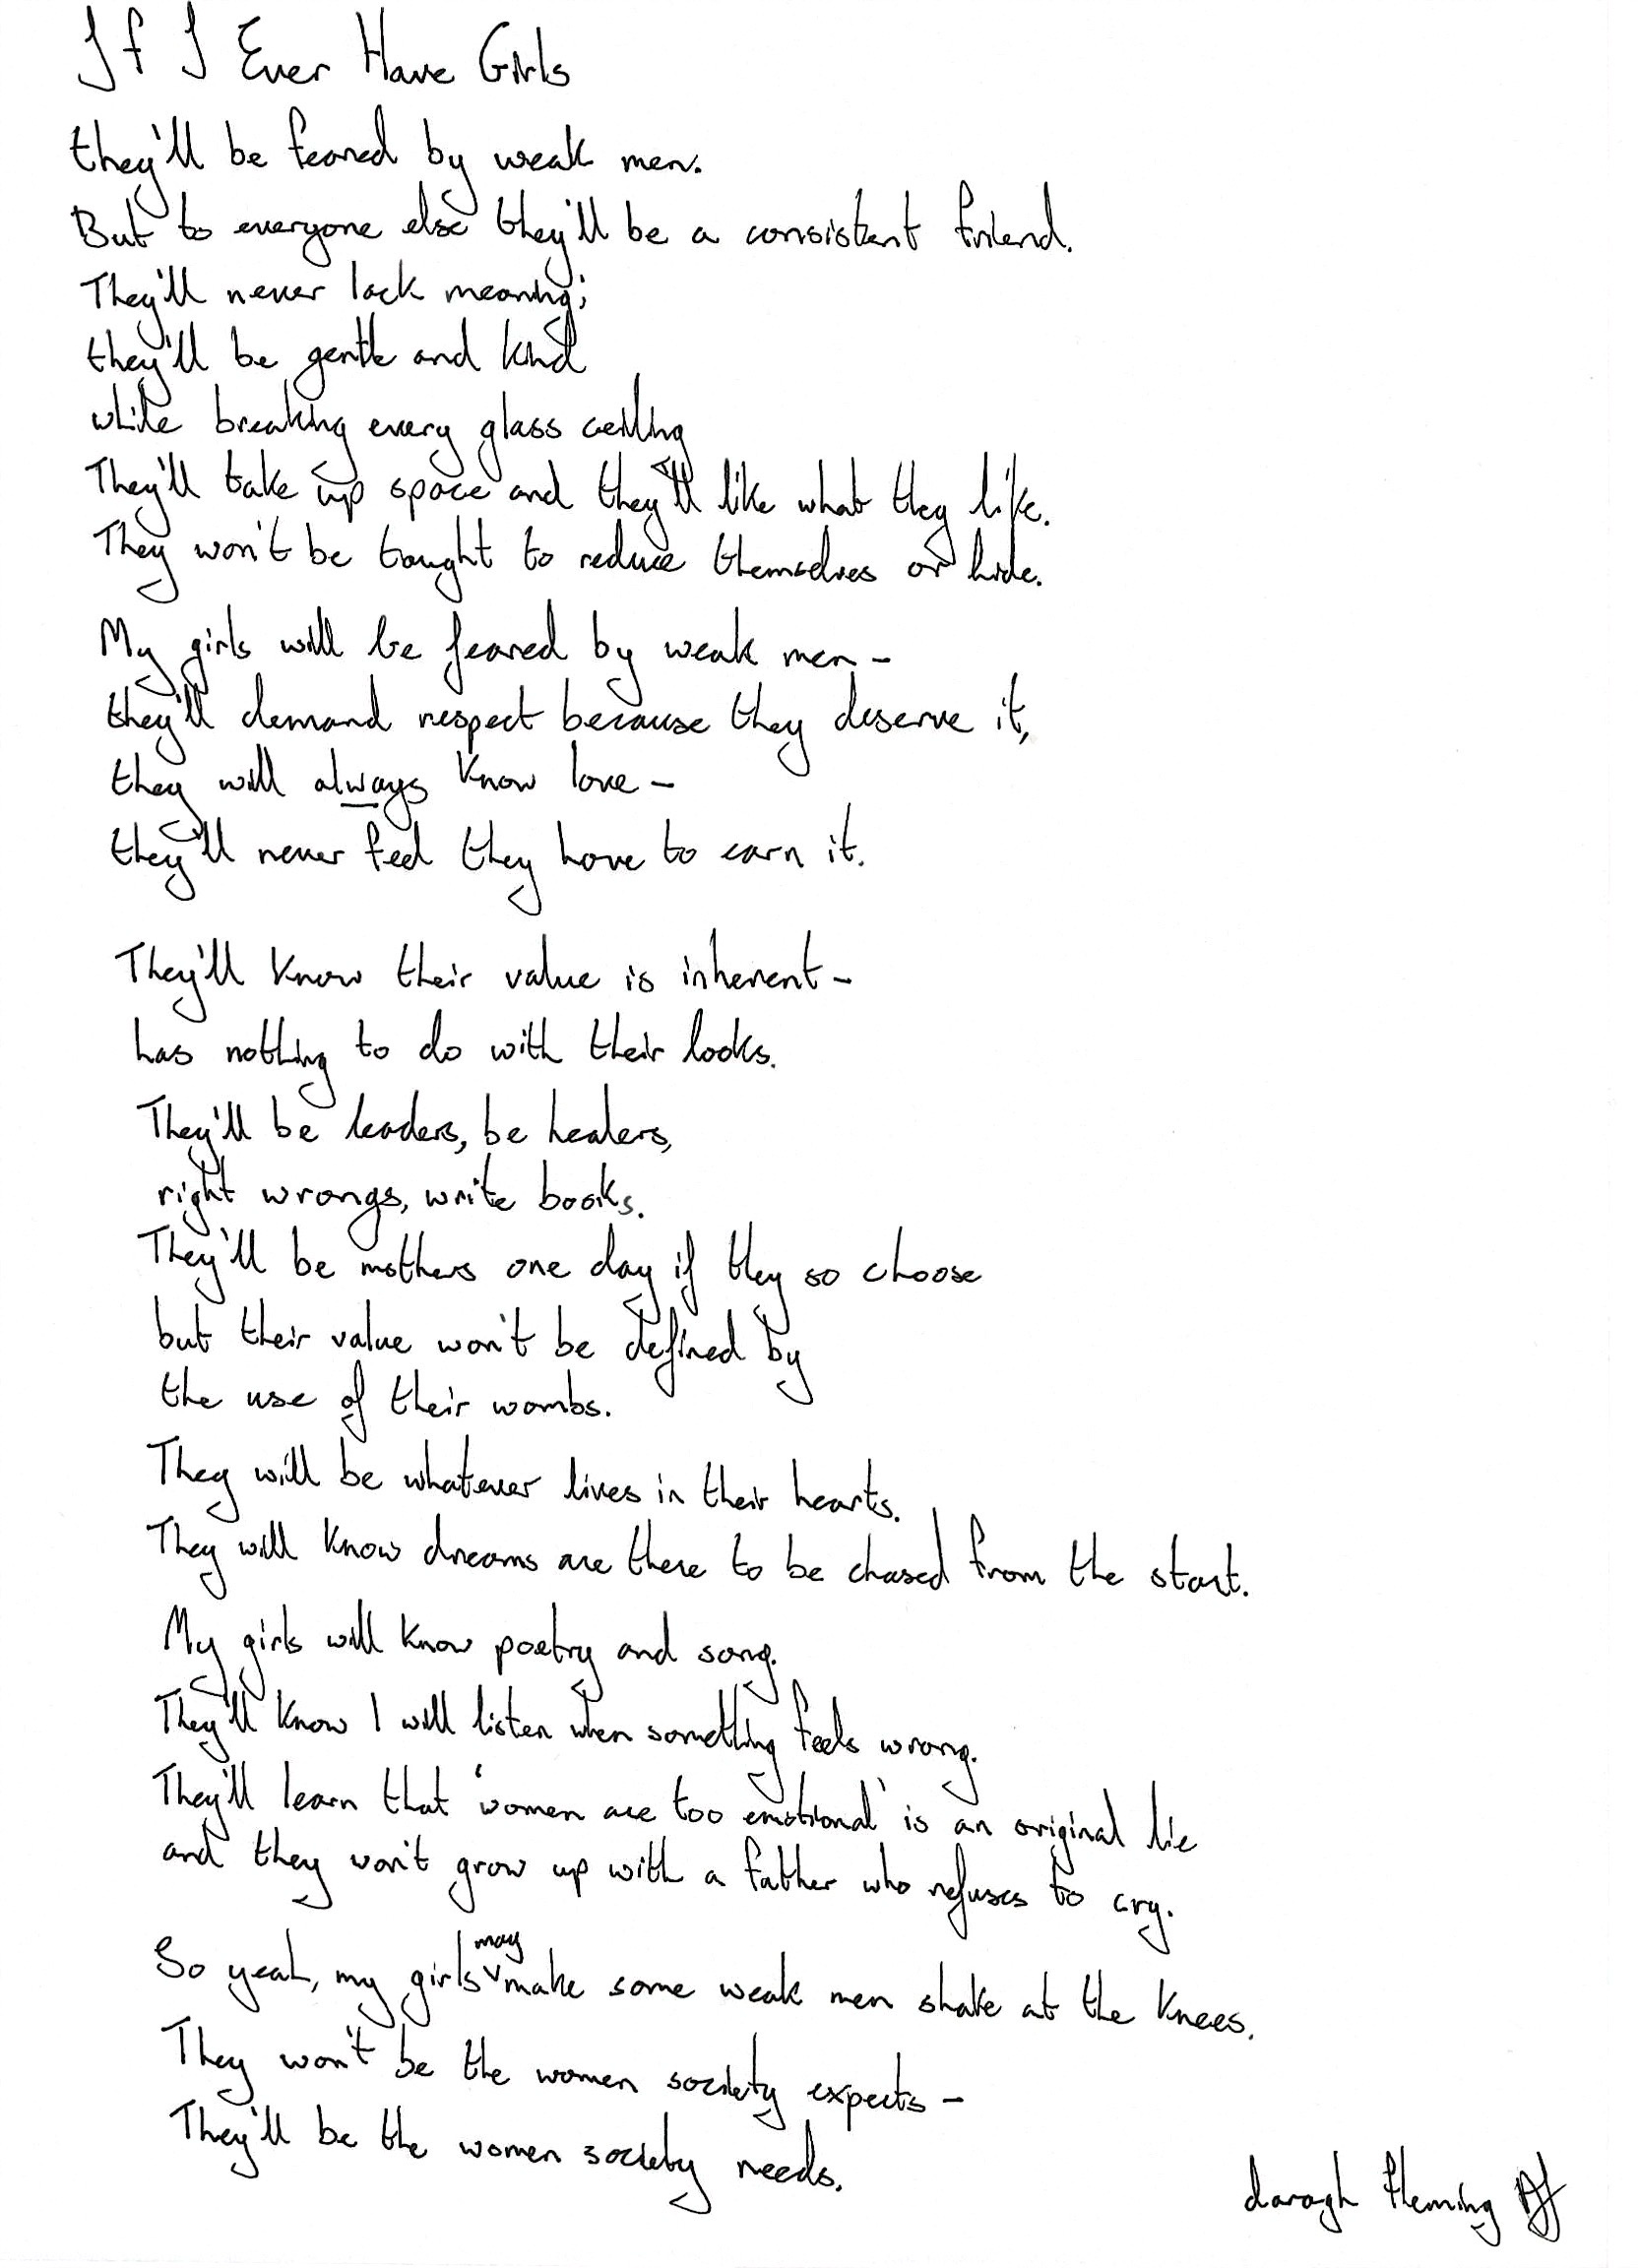 If I Ever Have Girls
they'll be feared by weak men.
But to everyone else they'll be a consistent friend.
They'll never lack meaning;
they'll be gentle and kind
while breaking every glass ceiling
They'll take up space and they'll like what they like.
They won't be taught to reduce themselves or hide.
My girls will be feared by weak men -
they'll demand respect because they deserve it,
they will always know love -
they'll never feel they have to earn it.
They'll know their value is inherent -
has nothing to do with their looks.
They'll be leaders, be healers,
right wrongs, write books.
They'll be mothers one day if they so choose
but their value won't be defined by
the use of their wombs.
They will be whatever lives in their hearts.
They will know dreams are there to be chased from the start.
My girls will know poetry and song.
They'll know I will listen when something feels wrong.
They'll learn that 'women are too emotional' is an original lie
and they won't grow up with a father who refuses to cry.
So yeah, my girls may make some weak men shake at the knees.
They won't be the women society expects -
They'll be the women society needs.
daragh fleming DF